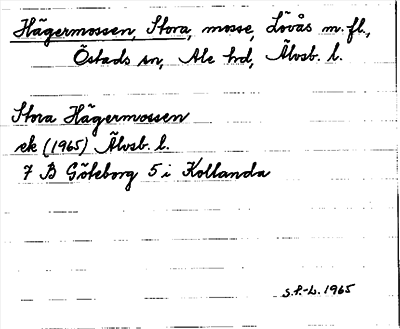 Hägermossen, Stora, mosse, Lövås m. fl.,
Östads sn, Ale hd, Älvsb. l.
Stora Hägermossen
ek (1965) Älvsb. l.
7 B Göteborg 5 i Kollanda
S.P.-L. 1965